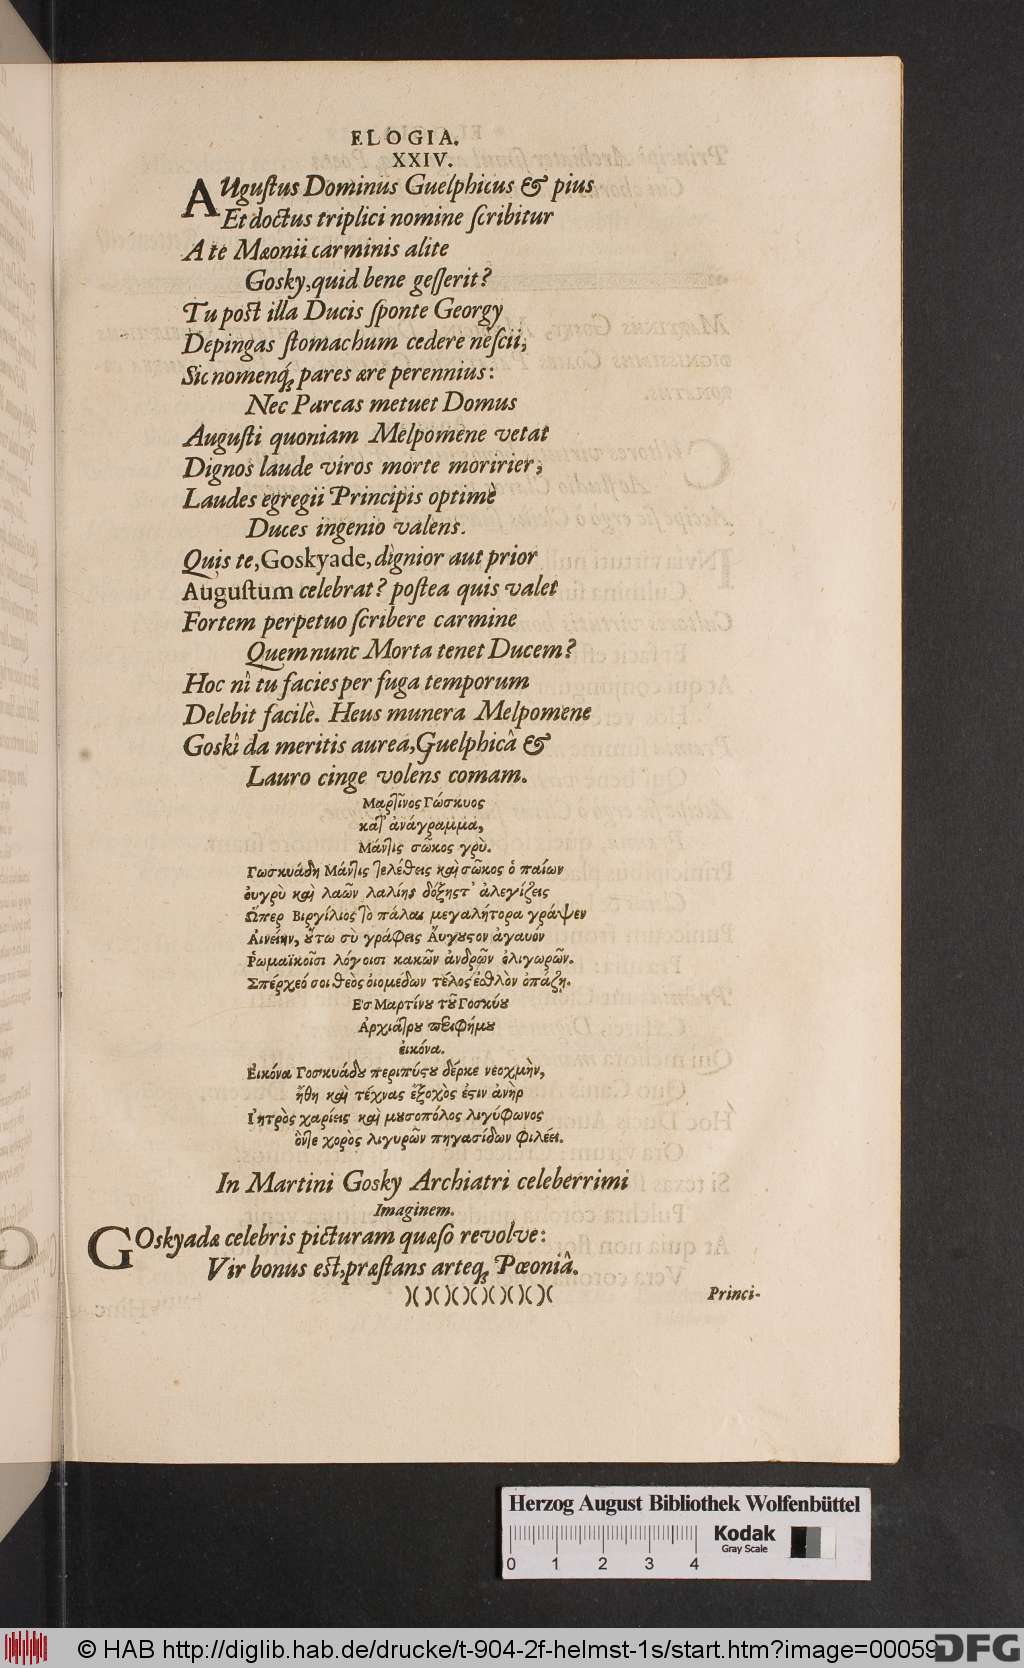 ELOGIA.
XXIV.
AUguſtus Dominus Guelphicus & pius
Et doctus triplici nomine ſcribitur
A te Mæonii carminis alite
Gosky, quid bene geſſerit?
Tu poſt illa Ducis ſponte Georgy
Depingas ſtomachum cedere neſcii,
Sic nomenq́; pares ære perennius:
Nec Parcas metuet Domus
Auguſti quoniam Melpomene vetat
Dignos laude viros morte moririer,
Laudes egregii Principis optime
Duces ingenio valens.
Quis te, Goskyade, dignior aut prior
Auguſtum celebrat? poſtea quis valet
Fortem perpetuo ſcribere carmine
Quem nunc Morta tenet Ducem?
Hoc nî tu facies per fuga temporum
Delebit facilè. Heus munera Melpomene
Goskî da meritis aurea, Guelphicâ &
Lauro cinge volens comam.
Μαρτῖνος Γώσκυος
κατ' ἀνάγραμμα,
Μάντις σῶκος γρὺ.
Γωσκυάδη Μάντις τελέθεις καὶ σῶκος ὁ παίων
ȣγρὺ καὶ λαῶν λαλίης δόξης τ' ἀλεγίζεις
Ὥπερ Βιργίλιος τὸ πάλαι μεγαλήτορα γράψεν
Αἰνείην, ὅτω σὺ γράφεις Ἄυγȣςον ἀγαυόν
Ῥωμαϊκοῖσι λόγοισι κακῶν ἀνδρῶν ὀλιγωρῶν.
Σπέρχεό σοι θεὸς ὁιομέδων τέλος ἐσθλὸν ὀπάζῃ.
Εσ Μαρτίνȣ τȣ͂ Γοσκύȣ
Ἀρχιάτρȣ περιφήμȣ
ἐικόνα.
Εἰκόνα Γοσκυάδȣ περιπύςȣ δέρκε νεοχμὴν,
ἤθη καὶ τέχνας ἔξοχὸς ἐςιν ἀνὴρ
Ἰητρὸς χαρίεις καὶ μȣσοπόλος λιγύφωνος
ὅντε χορὸς λιγυρῶν πηγασίδων φιλέει.
In Martini Gosky Archiatri celeberrimi
Imaginem.
GOskyadæ celebris picturam quæſo revolve:
Vir bonus eſt, præſtans arteq́; Pœoniâ.
)( )( )( )( )( )( )( )(
Princi-
Herzog August Bibliothek Wolfenbüttel
0 1 2 3 4
Kodak
Gray Scale
© HAB http://diglib.hab.de/drucke/t-904-2f-helmst-1s/start.htm?image=00059
DFG